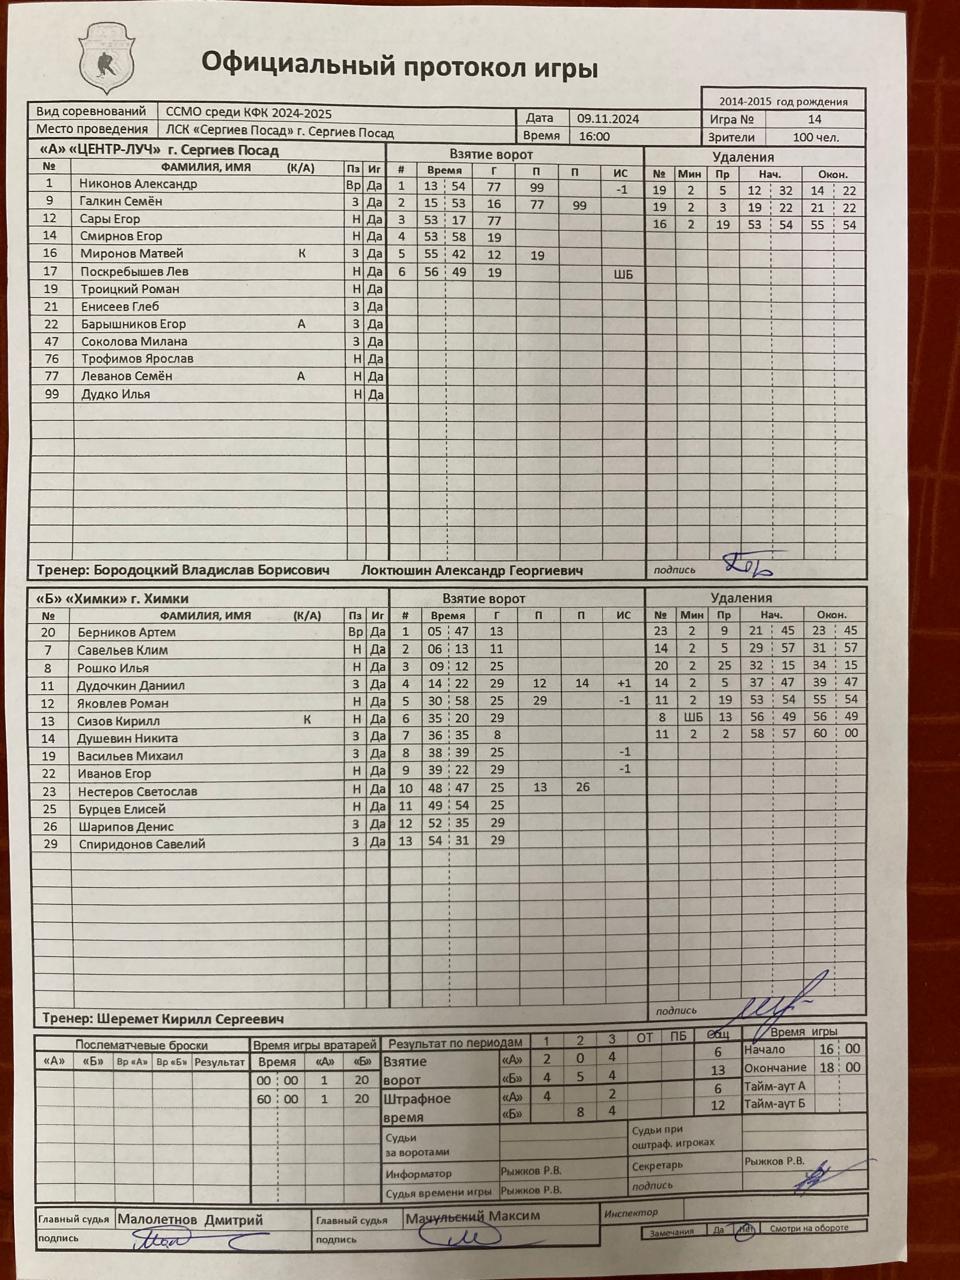 Официальный протокол игры
2014-2015 год рождения
Вид соревнований ССМО среди КФК 2024-2025 Дата 09.11.2024 Игра № 14
Место проведения ЛСК «Сергиев Посад» г. Сергиев Посад Время 16:00 Зрители 100 чел.
«А» «ЦЕНТР-ЛУЧ» г. Сергиев Посад Взятие ворот Удаления
№ ФАМИЛИЯ, ИМЯ (К/А) Пз Иг # Время Г П П ИС № Мин Пр Нач. Окон.
1 Никонов Александр Вр Да 1 13 54 77 99 -1 19 2 5 12 32 14 22
9 Галкин Семён З Да 2 15 53 16 77 99 19 2 3 19 22 21 22
12 Сары Егор Н Да 3 53 17 77 16 2 19 53 54 55 54
14 Смирнов Егор Н Да 4 53 58 19
16 Миронов Матвей К З Да 5 55 42 12 19
17 Поскребышев Лев Н Да 6 56 49 19 ШБ
19 Троицкий Роман Н Да
21 Енисеев Глеб З Да
22 Барышников Егор А З Да
47 Соколова Милана З Да
76 Трофимов Ярослав Н Да
77 Леванов Семён А Н Да
99 Дудко Илья Н Да
Тренер: Бородоцкий Владислав Борисович Локтюшин Александр Георгиевич подпись
«Б» «Химки» г. Химки Взятие ворот Удаления
№ ФАМИЛИЯ, ИМЯ (К/А) Пз Иг # Время Г П П ИС № Мин Пр Нач. Окон.
20 Берников Артем Вр Да 1 05 47 13 23 2 9 21 45 23 45
7 Савельев Клим Н Да 2 06 13 11 14 2 5 29 57 31 57
8 Рошко Илья Н Да 3 09 12 25 20 2 25 32 15 34 15
11 Дудочкин Даниил З Да 4 14 22 29 12 14 +1 14 2 5 37 47 39 47
12 Яковлев Роман Н Да 5 30 58 25 29 -1 11 2 19 53 54 55 54
13 Сизов Кирилл К Н Да 6 35 20 29 8 ШБ 13 56 49 56 49
14 Душевин Никита З Да 7 36 35 8 11 2 2 58 57 60 00
19 Васильев Михаил З Да 8 38 39 25 -1
22 Иванов Егор Н Да 9 39 22 29 -1
23 Нестеров Светослав Н Да 10 48 47 25 13 26
25 Бурцев Елисей Н Да 11 49 54 25
26 Шарипов Денис З Да 12 52 35 29
29 Спиридонов Савелий З Да 13 54 31 29
Тренер: Шеремет Кирилл Сергеевич подпись
Послематчевые броски Время игры вратарей Результат по периодам 1 2 3 ОТ ПБ Общ Время игры
«А» «Б» Вр «А» Вр «Б» Результат Время «А» «Б» Взятие ворот «А» 2 0 4 6 Начало 16 00
00 00 1 20 «Б» 4 5 4 13 Окончание 18 00
60 00 1 20 Штрафное время «А» 4 2 6 Тайм-аут А
«Б» 8 4 12 Тайм-аут Б
Судьи за воротами Судьи при оштраф. игроках
Информатор Рыжков Р.В. Секретарь Рыжков Р.В.
Судья времени игры Рыжков Р.В. подпись
Главный судья Малолетнов Дмитрий Главный судья Мачульский Максим Инспектор
подпись подпись Замечания Да Нет Смотри на обороте